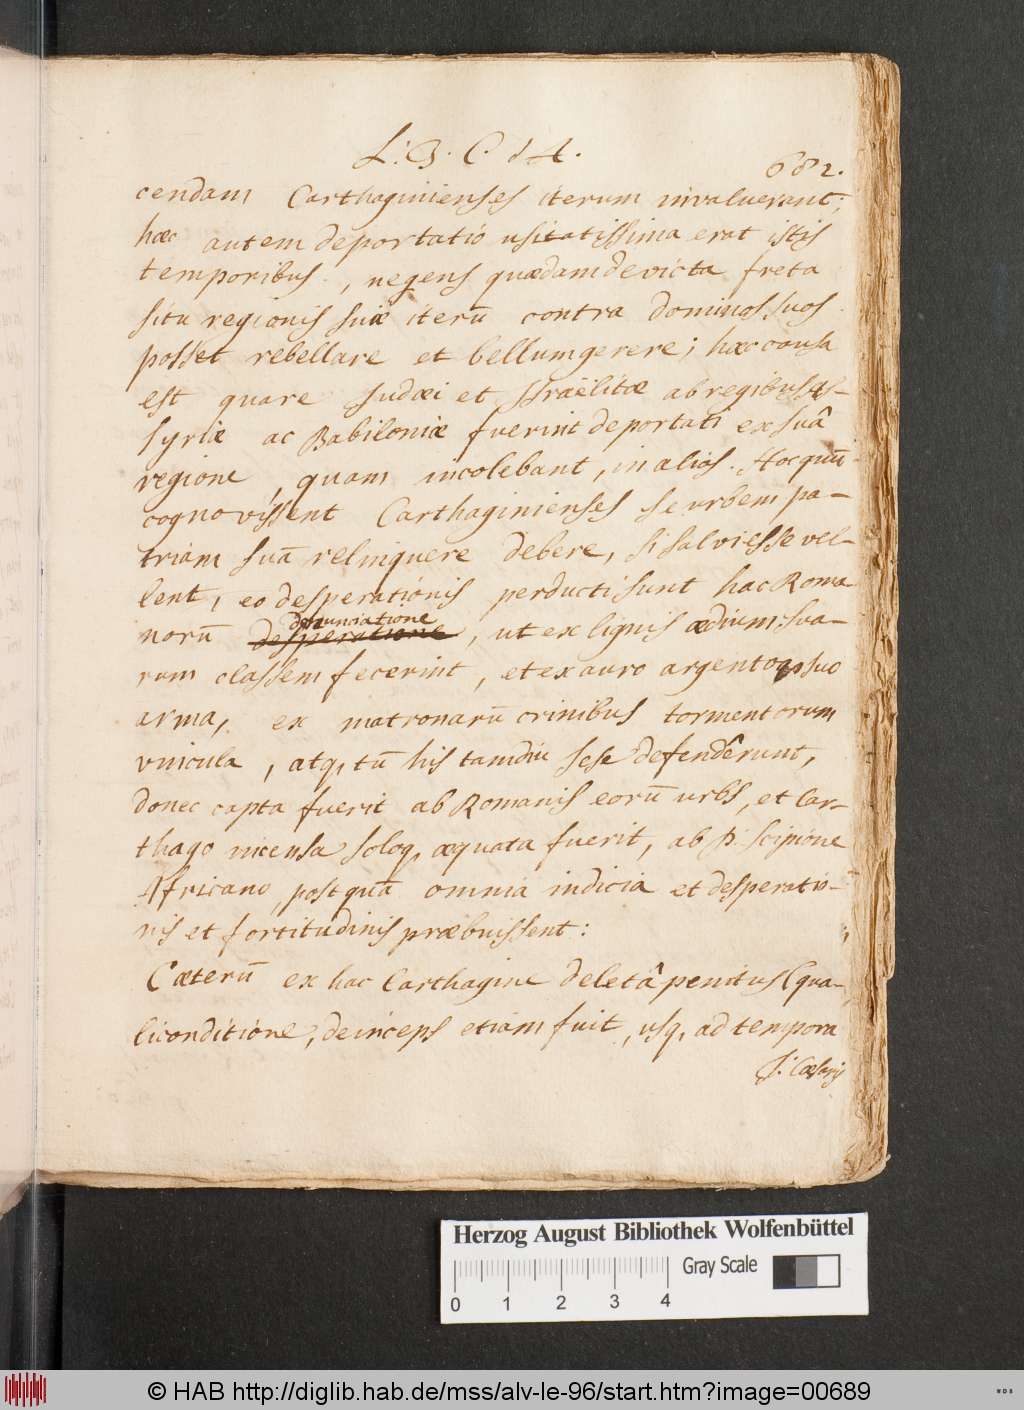 L. B. C. 14.
682.
cendam Carthaginienses iterum invaluerant;
hæc autem deportatio usitatissima erat istis
temporibus, ne gens quædam devicta freta
situ regionis suæ iterũ contra dominos suos
posset rebellare et bellum gerere; hæc causa
est quare Judæi et Israëlitæ ab regibus As-
syriæ ac Babiloniæ fuerint deportati ex suâ
regione, quam incolebant, in alios. Hoc quũ
cognovissent Carthaginienses se urbem pa-
triam suã relinquere debere, si salvi esse vel-
lent, eo desperationis perducti sunt hac Roma
norũ denunciatione
desperatione, ut ex lignis ædium sua-
rum classem fecerint, et ex auro argentoq, suo
arma, ex matronarũ crinibus tormentorum
vnicula, atq, tũ his tamdiu sese defendêrunt,
donec capta fuerit ab Romanis eorũ urbs, et Car-
thago incensa soloq, æquata fuerit, ab P. Scipione
Africano, postquã omnia indicia et desperatio-
nis et fortitudinis præbuissent:
Cæterũ ex hac Carthagine deletâ penitus (qua-
li conditione, deinceps etiam fuit, usq, ad tempora
J. Cæsaris
Herzog August Bibliothek Wolfenbüttel
0 1 2 3 4
Gray Scale
© HAB http://diglib.hab.de/mss/alv-le-96/start.htm?image=00689